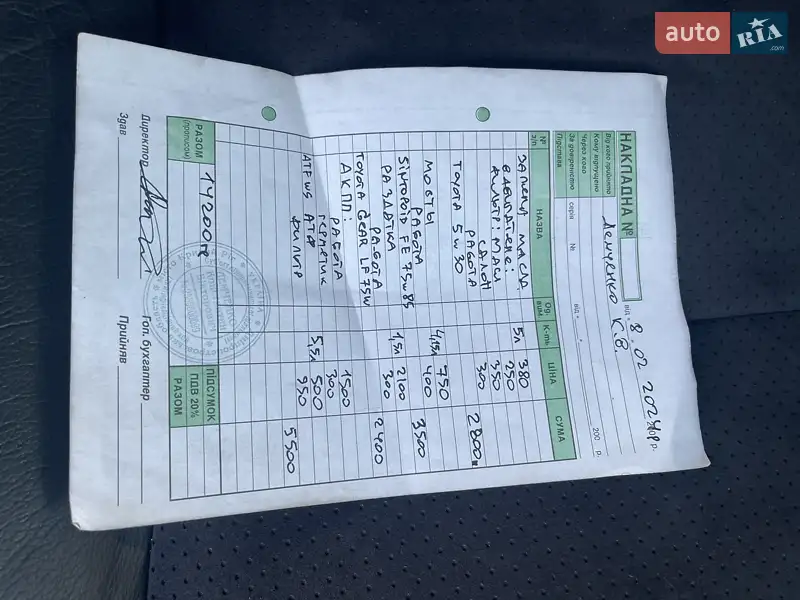 auto RIA
НАКЛАДНА №
від " 8.02 2024р 200 р.
Від кого прийнято
Кому відпущено Демченко К.В.
Через кого
За довіреністю серія № від " " 200 р.
Підстава
№ з/п НАЗВА Од. вим. К-ть ЦІНА СУМА
ЗАМЕНА МАСЛА
В ДВИГАТЕЛЕ: 5л 380
ФИЛЬТР: МАСЛ 250
САЛОН 350
РАБОТА 300
TOYOTA 5w30 2800
МОСТЫ 750
РАБОТА 4,15л 400
SINTOPOID FE 75w85 3500
РАЗДАТКА 1,5л 2100
РАБОТА 300
TOYOTA GEAR LF 75W 2400
АКПП:
РАБОТА 1500
ГЕРМЕТИК 300
ATF WS АТФ 5,5л 500
ФИЛЬТР 950
5500
РАЗОМ (прописом) 14200гр
ПІДСУМОК
ПДВ 20%
РАЗОМ
Директор Гол. бухгалтер
Здав Прийняв